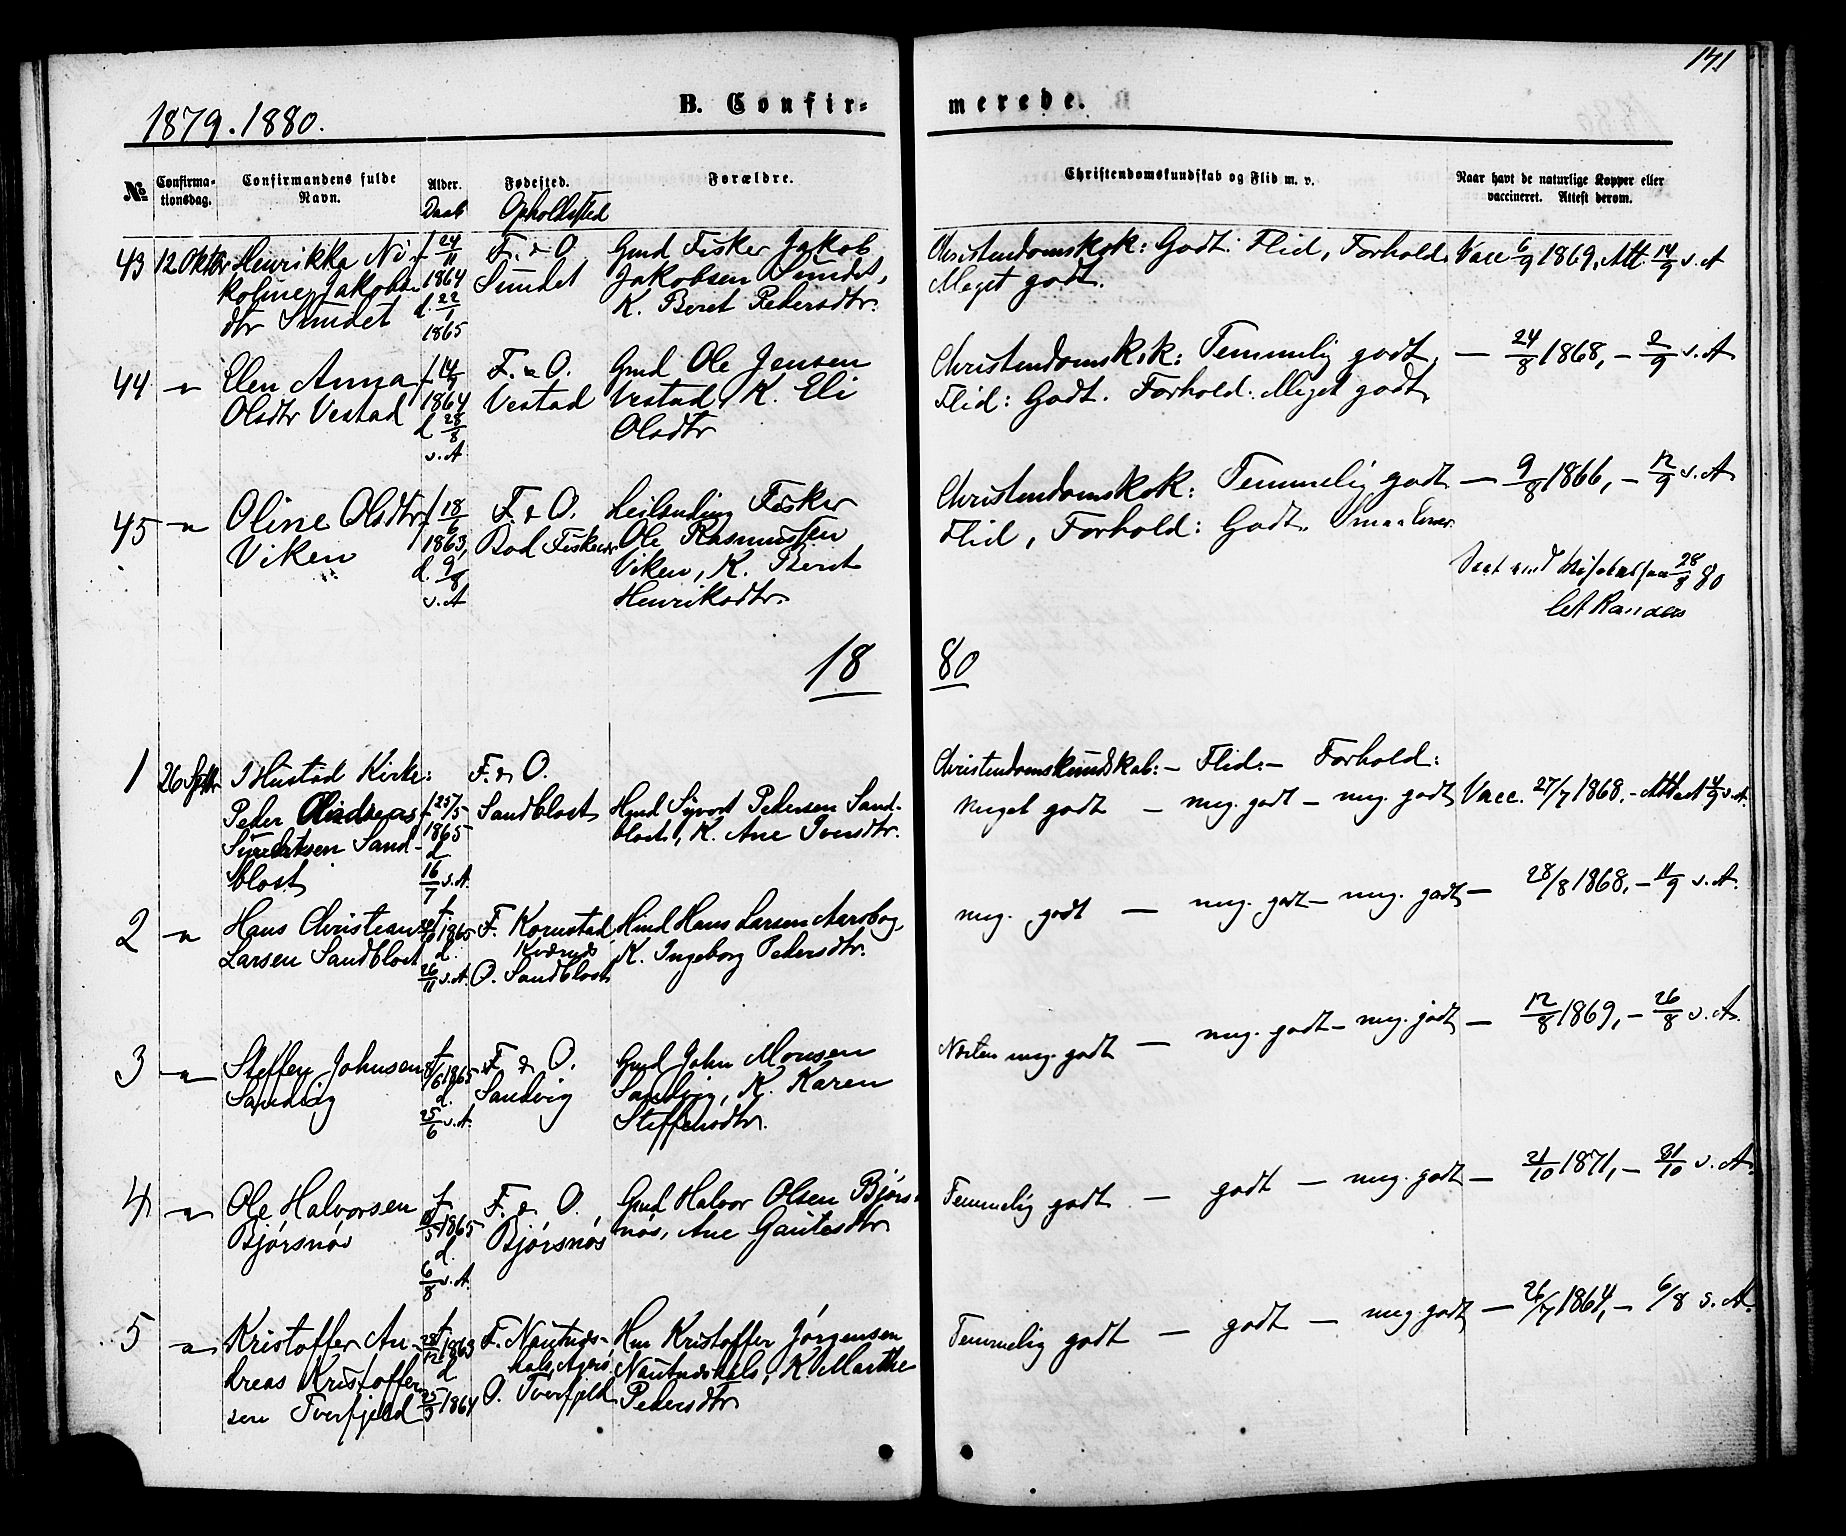 141
1879.1880.
B. Confir-
merede.
№
Confirma-
tionsdag.
Confirmandens fulde
Navn.
Alder.
Daab
Fødested.
Opholdssted
Forældre.
Christendomskundskab og Flid m. v.
Naar havt de naturlige Kopper eller
vaccineret. Attest derom.
43 12 Oktbr Henrikke Ni-
koline Jakobs-
dtr Sundet
f 24/11
1864
d. 22/1
1865
F. & O.
Sundet
Gmd Fisker Jakob
Jakobsen Sundet,
K. Beret Pedersdtr.
Christendomsksk: Godt. Flid, Forhold
Meget godt.
Vacc 6/9 1869, Att. 14/9 s. A
44 - " Elen Anna
Olsdtr Vestad
f 14/7
1864
d 28/8
s. A
F. & O.
Vestad
Gmd Ole Jensen
Vestad, K. Eli
Olsdtr
Christendomsk.sk: Temmelig godt,
Flid: Godt. Forhold: Meget godt,
— 24/8 1868, - 2/9 s. A
45 - " Oline Olsdtr
Viken
f 18/6
1863,
d. 9/8
s. A
F. & O.
Bod Fiskevær
Leilending Fisker
Ole Rasmussen
Viken, K. Berit
Henriksdtr.
Christendomsk.sk: Temmelig godt
Flid, Forhold: Godt.
— 9/8 1866, - 12/9 s. A
28/8 80
18 80
1 26 Sptbr I Hustad Kirke:
Peder Andreas
Syvertsen Sand-
blost
f. 25/5
1865
d
16/7 s. A.
F. & O.
Sandblost
Gmd Syvert Pedersen Sand-
blost, K. Ane Iversdtr.
Christendomskundskab: - Flid: - Forhold:
Meget godt — meg. godt — meg. godt, Vacc. 27/7 1868, - Attest 4/9 s. A.
2 - " Hans Christian
Larsen Sandblost
1865
d.
26/11 s. A.
F. Kornstad
Kværnæs
O. Sandblost
Hmd Hans Larsen Aarsbog,
K. Ingeborg Pedersdtr.
meg. godt — meg. godt — meg. godt — 28/8 1868, - 11/9 s. A.
3 - " Steffen Johnsen
Sandvig
f 8/6 1865
d.
25/6 s. A.
F. & O.
Sandvig
Gmd John Monsen
Sandvig, K. Karen
Steffensdtr.
Næsten meg. godt — meg. godt — meg. godt — 12/8 1869, - 26/8 s. A.
4 - " Ole Halvorsen
Bjørsnøs
f
1865
d.
6/8 s. A.
F. & O.
Bjørsnøs
Gmd Halvor Olsen Bjørs-
nøs, Ane Gautesdtr
Temmelig godt — godt — meg. godt — 21/10 1871, - 31/10 s. A.
5 - " Kristoffer An-
dreas Kristoffer-
sen Tverfjeld
f
28/12 1863
d
25/3 1864
F. Nautnæs-
hals, Agerø
O. Tverfjeld
Hm Kristoffer Jørgensen
Nautnæshals, K. Marthe
Pedersdtr
Temmelig godt — godt — meg. godt — 26/7 1864, - 6/8 s. A.